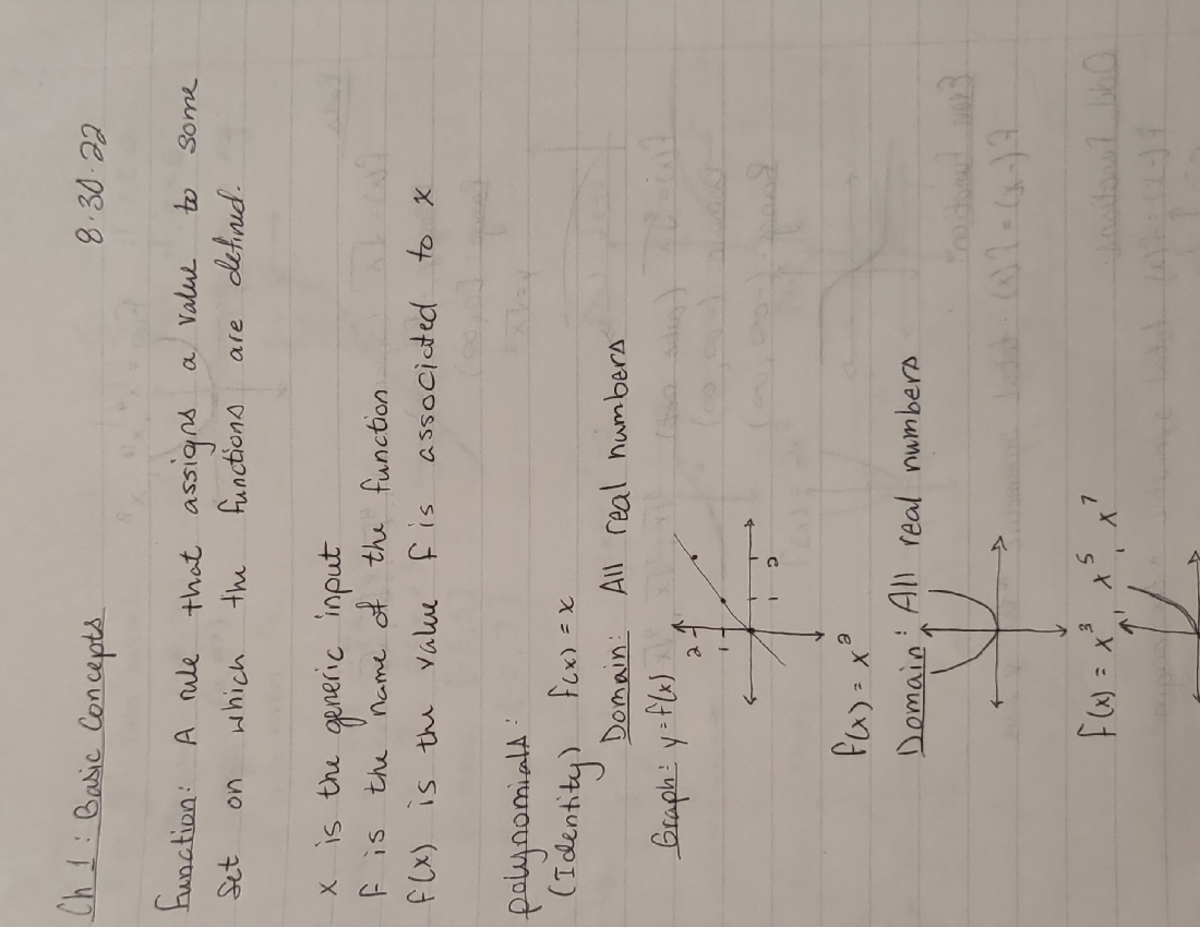 Ch 1: Basic Concepts 8.30.22
Function: A rule that assigns a value to some
set on which the functions are defined.
x is the generic input
f is the name of the function
f(x) is the value f is associated to x
polynomials:
(Identity) f(x) = x
Domain: All real numbers
Graph: y=f(x)
2
1
1 2
f(x) = x²
Domain: All real numbers
f(x) = x³, x⁵, x⁷